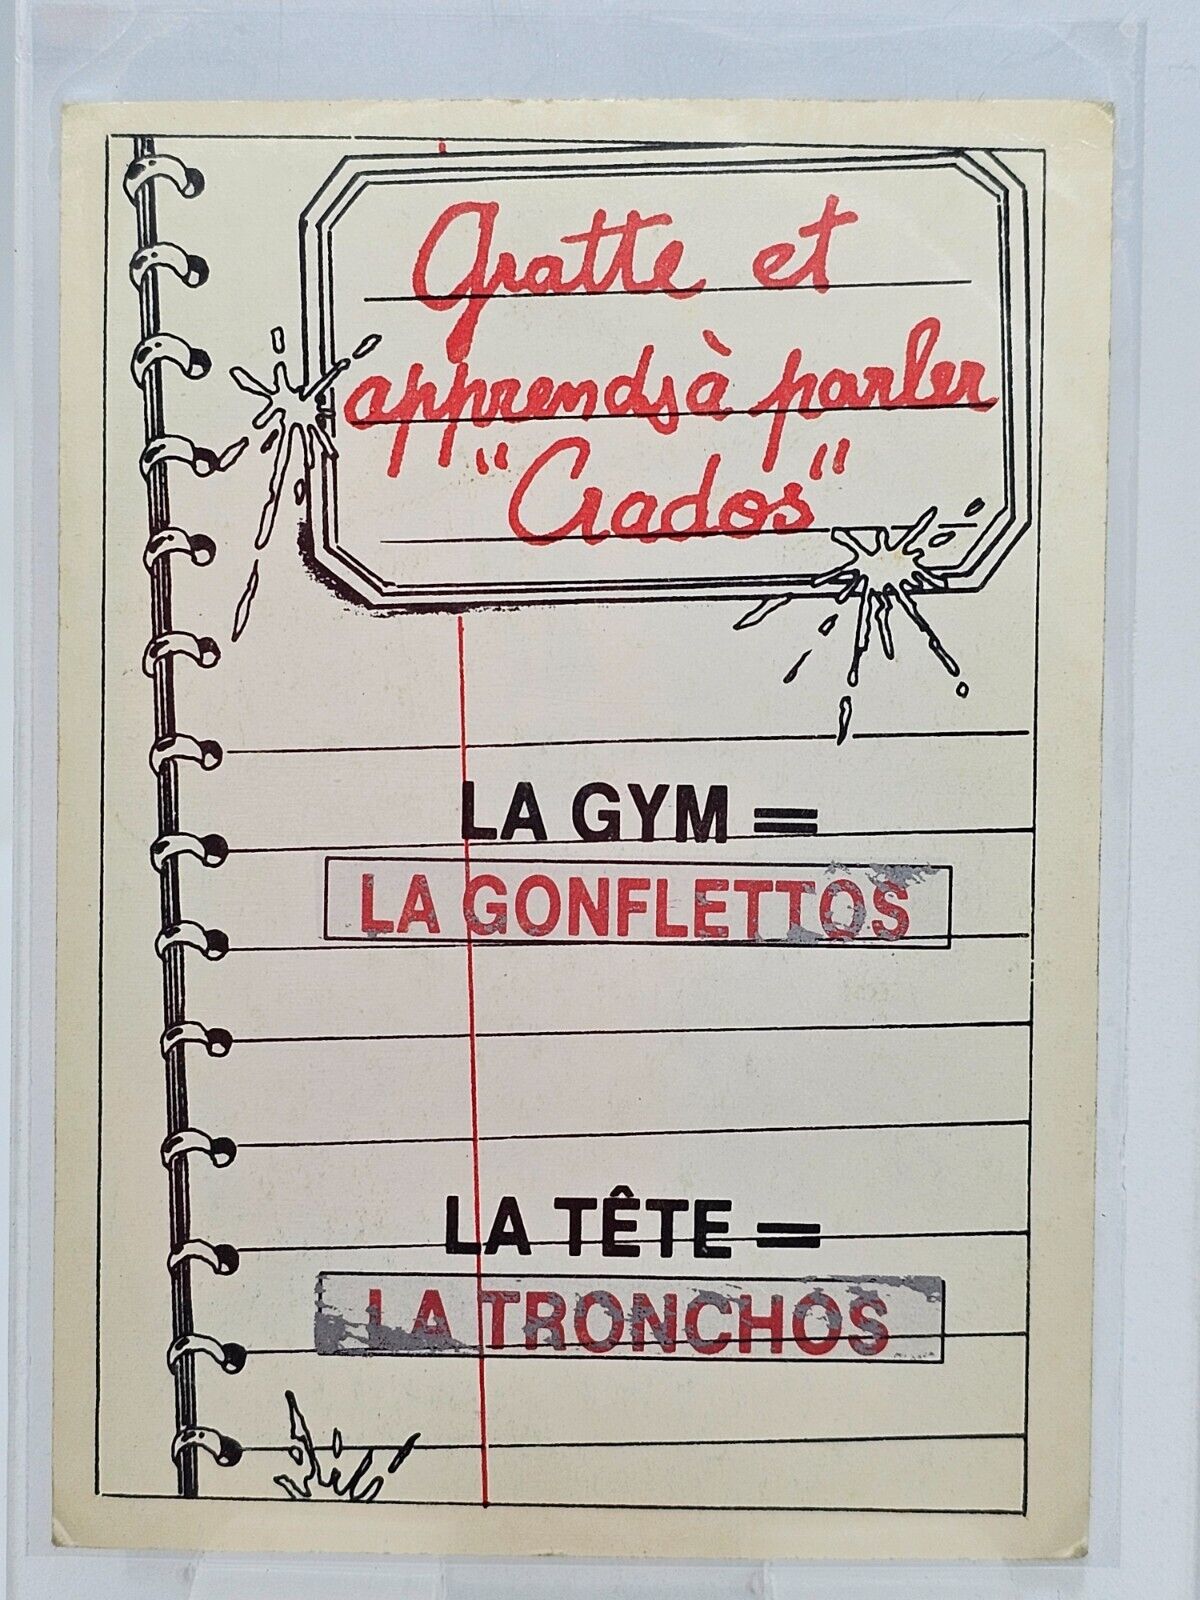 Gratte et
apprends à parler
"Crados"
LA GYM =
LA GONFLETTOS
LA TÊTE =
LA TRONCHOS